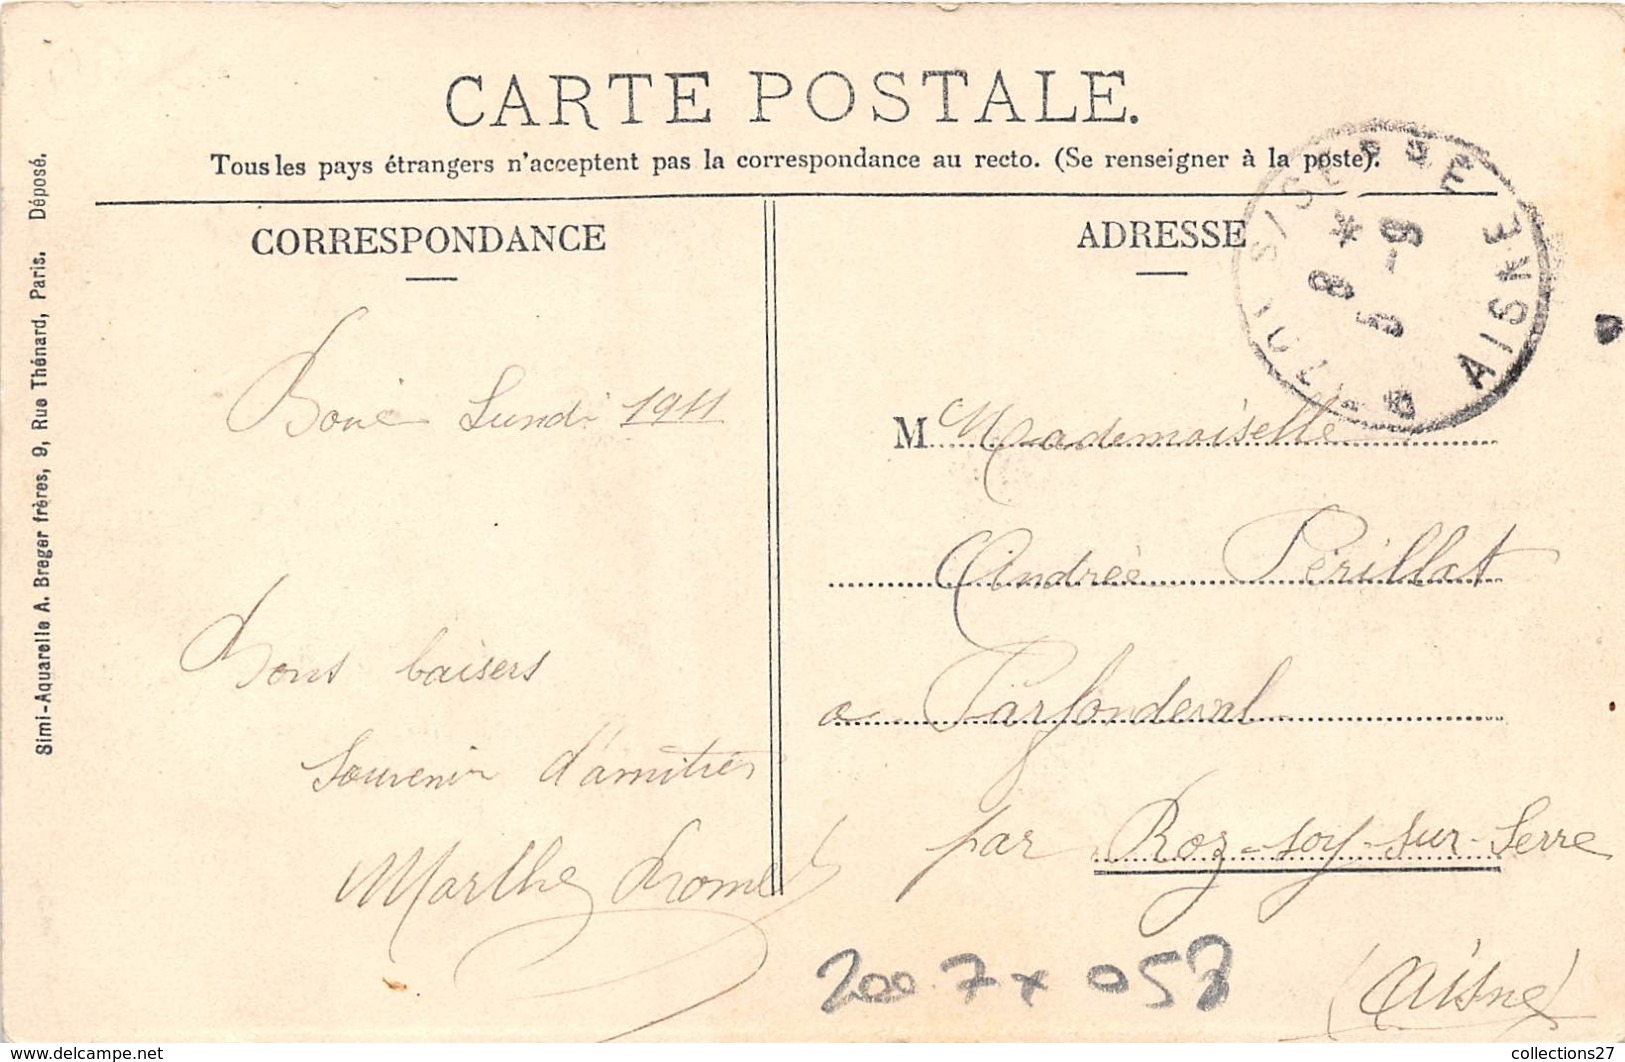 CARTE POSTALE.
Tous les pays étrangers n'acceptent pas la correspondance au recto. (Se renseigner à la poste).
Simi-Aquarelle A. Breger frères, 9, Rue Thénard, Paris. Déposé.
CORRESPONDANCE
Boué Lundi 1911
Bons baisers
Souvenir d'amitiés
Marthe
ADRESSE
AISNE
8 *
5 - 9
M Mademoiselle
Andrée Périllat
a Parfondeval
par Roz-soy-sur-Serre
(Aisne)
2007 x 058
www.delcampe.net
collections27